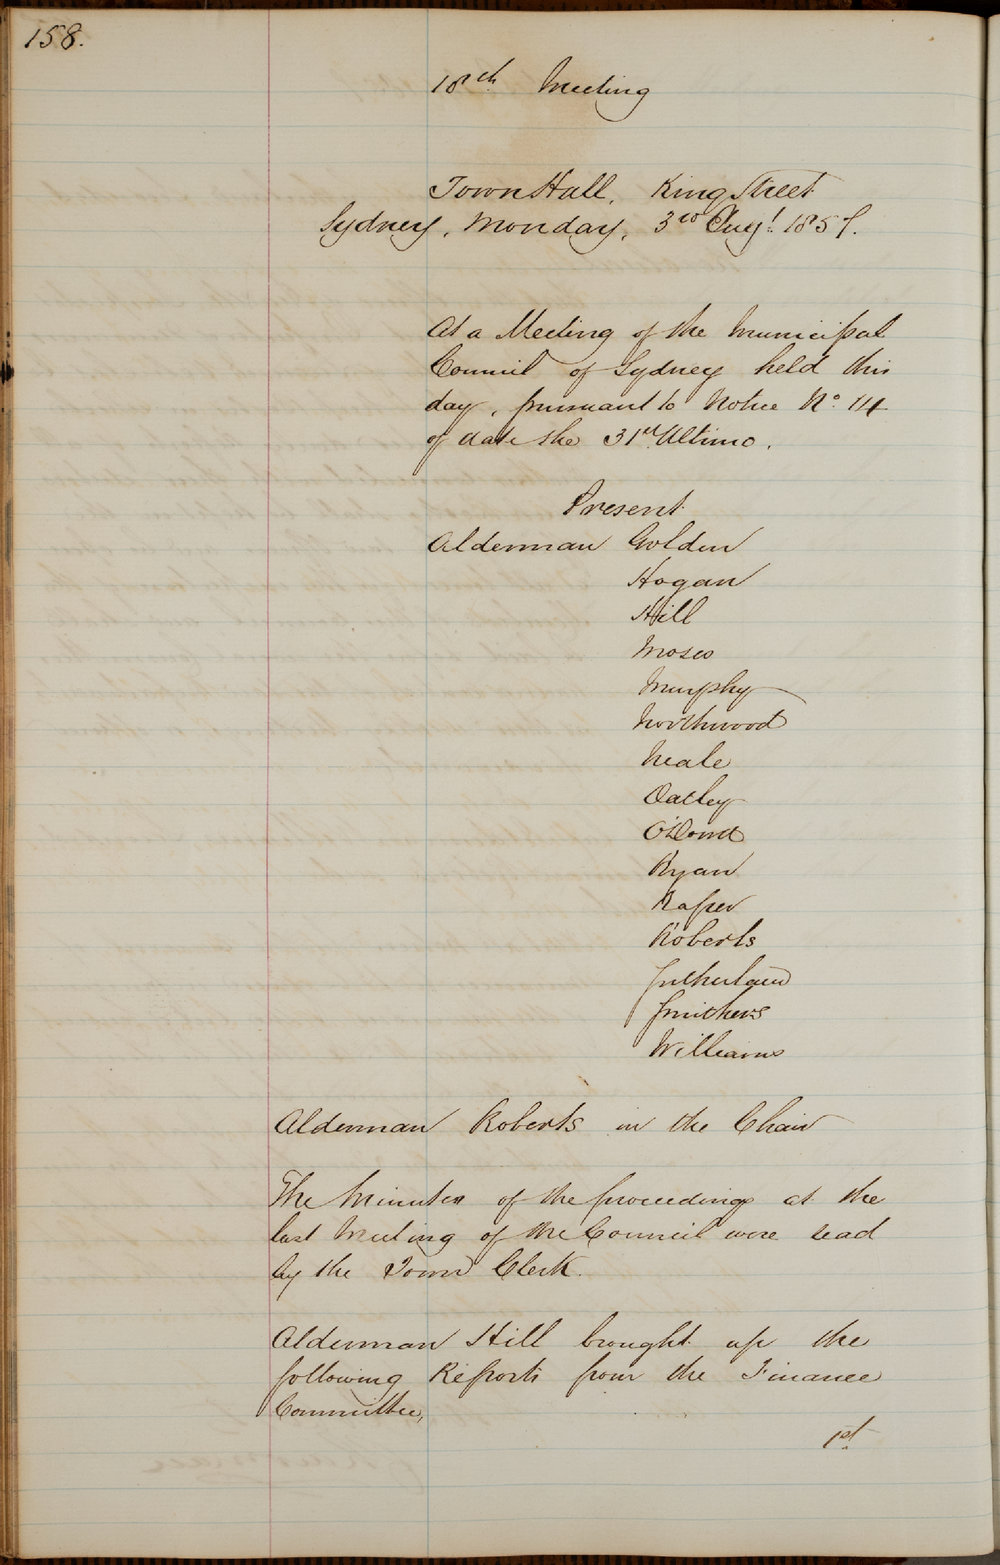 158.
18th Meeting
Town Hall, King Street
Sydney, Monday, 3rd Augt. 1857.
At a Meeting of the Municipal
Council of Sydney held this
day, pursuant to Notice No. 114
of date the 31st Ultimo.
Present
Alderman Golden
Hogan
Hill
Moses
Murphy
Northwood
Neale
Oatley
O'Dowd
Ryan
Raper
Roberts
Sutherland
Smithers
Williams
Alderman Roberts in the Chair
The Minutes of the proceedings at the
last Meeting of the Council were read
by the Town Clerk.
Alderman Hill brought up the
following Reports from the Finance
Committee,
1st